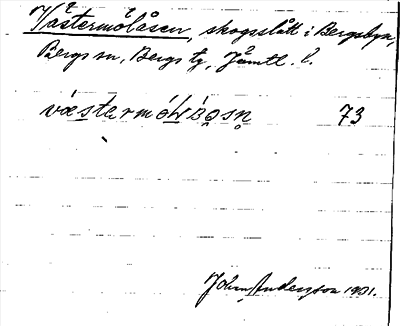 Västermolåsen, skogsslått i Bergsbyn,
Bergs sn, Bergs tg, Jämtl. l.
73
John Anderzon 1931.